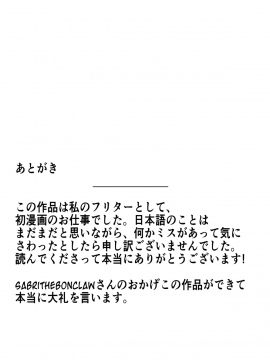 あとがき
この作品は私のフリターとして、
初漫画のお仕事でした。日本語のことは
まだまだと思いながら、何かミスがあって気に
さわったとしたら申し訳ございませんでした。
読んでくださって本当にありがとうございます!
SABRITHEBONCLAWさんのおかげこの作品ができて
本当に大礼を言います。